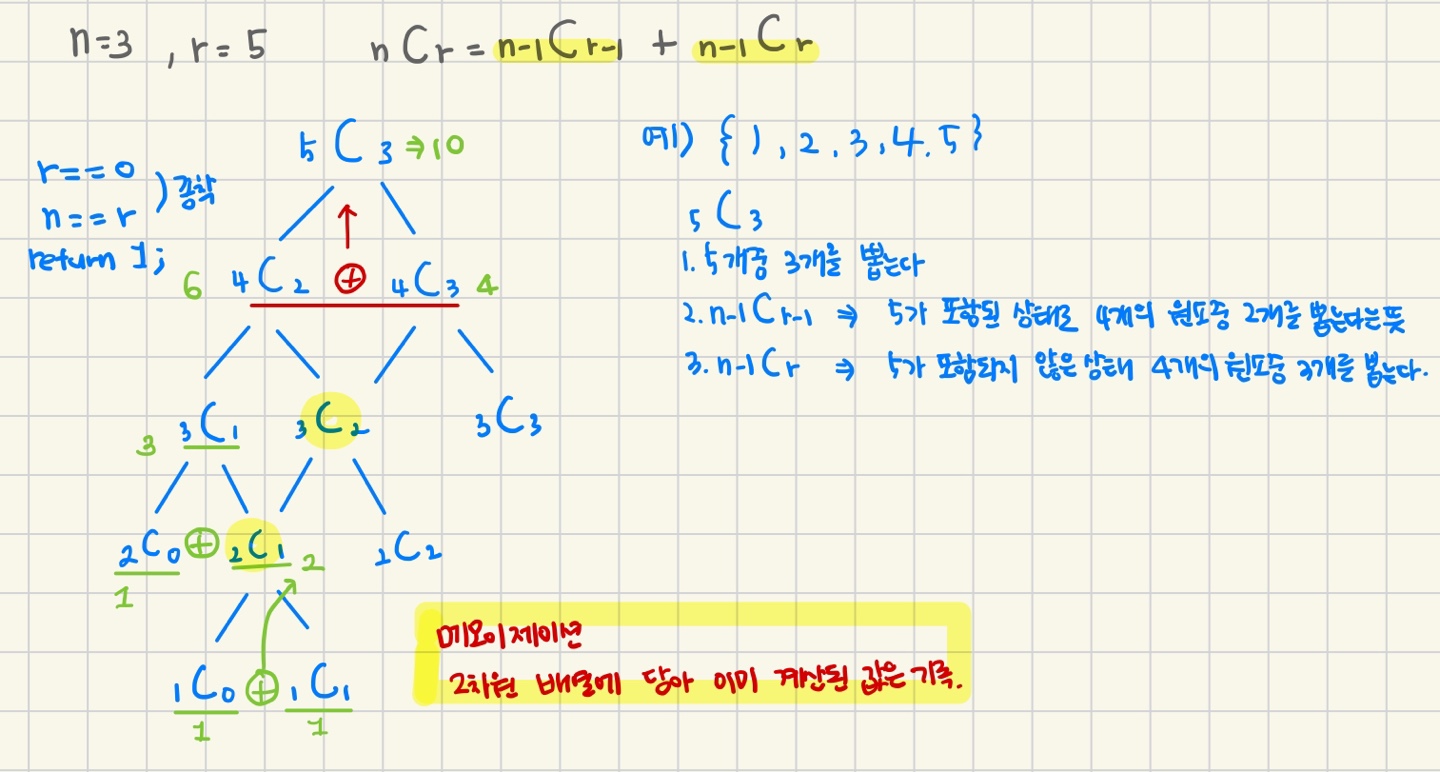 n=3 , r=5
nCr = n-1Cr-1 + n-1Cr
r==0
n==r
) 종착
return 1;
5C3 ⇒10
6 4C2 ⊕ 4C3 4
3 3C1 3C2 3C3
2C0 ⊕ 2C1 2 2C2
1
1C0 ⊕ 1C1
1 1
예) {1, 2, 3, 4. 5}
5C3
1. 5개중 3개를 뽑는다
2. n-1Cr-1 ⇒ 5가 포함된 상태로 4개의 원소중 2개를 뽑는다는 뜻
3. n-1Cr ⇒ 5가 포함되지 않은 상태 4개의 원소중 3개를 뽑는다.
메모이제이션
2차원 배열에 담아 이미 계산된 값은 기록.